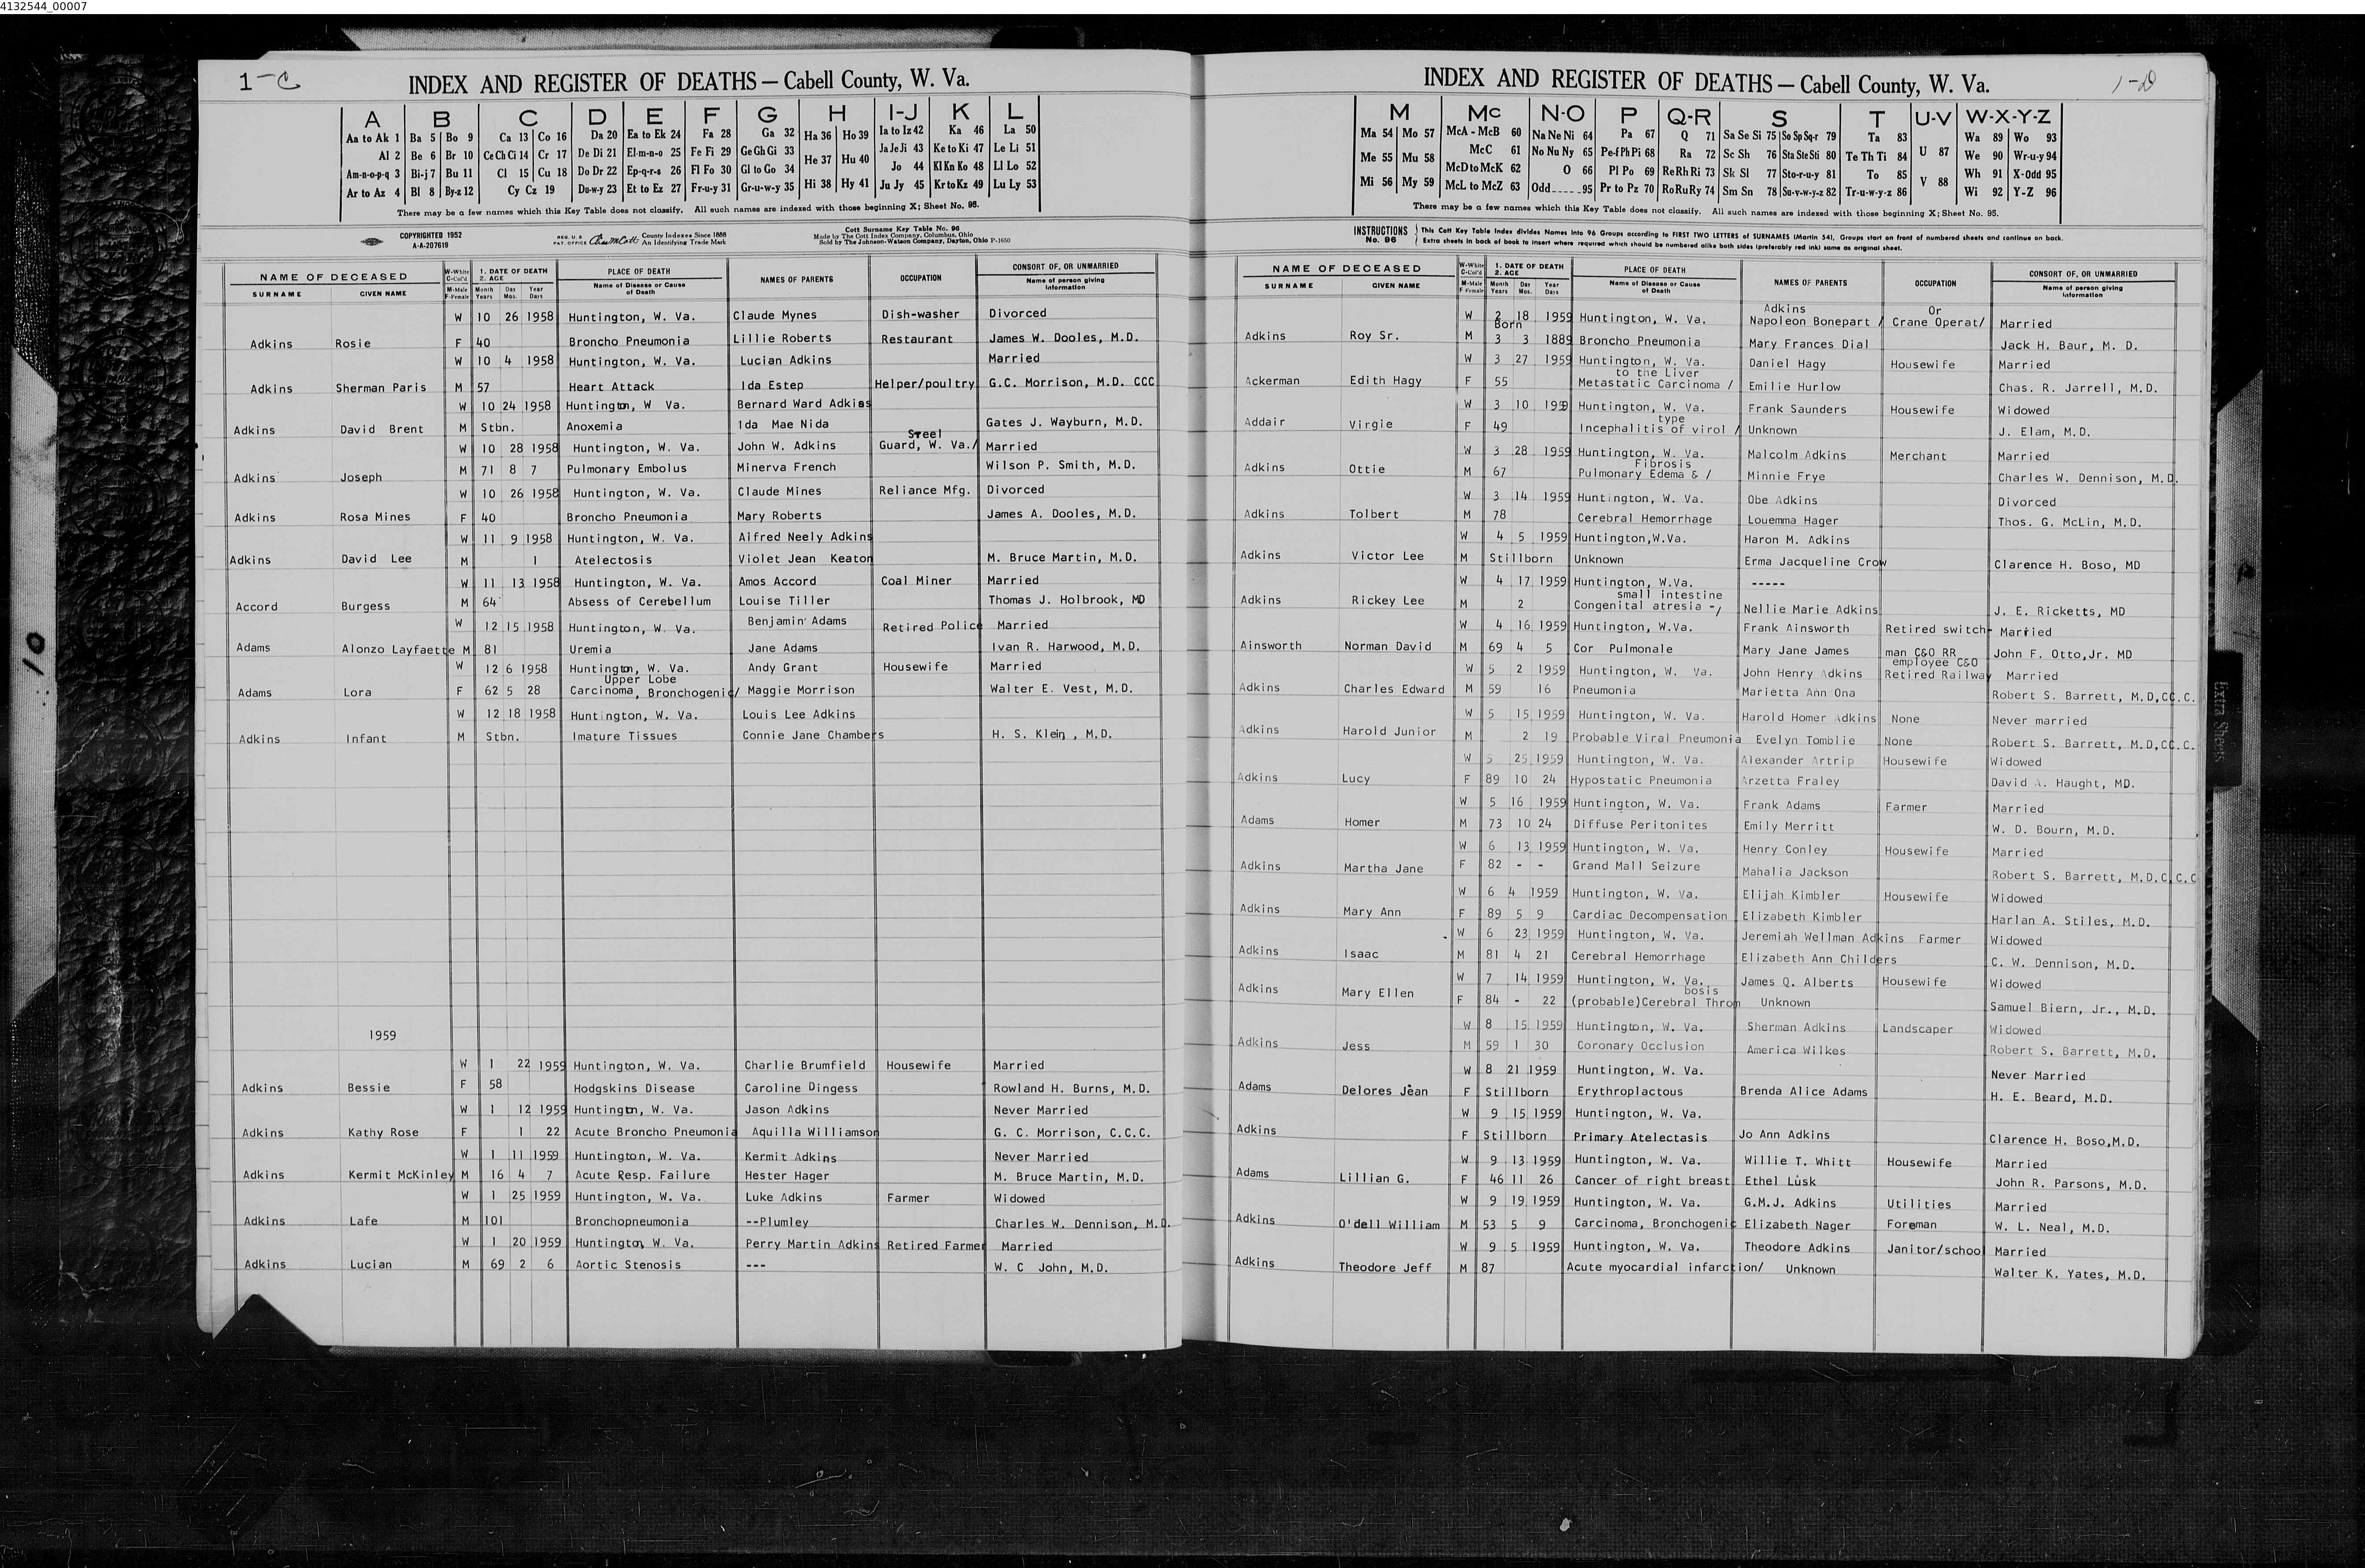 4132544_00007
1-C
INDEX AND REGISTER OF DEATHS — Cabell County, W. Va.
A B C D E F G H I-J K L
Aa to Ak 1 Ba 5 Bo 9 Ca 13 Co 16 Da 20 Ea to Ek 24 Fa 28 Ga 32 Ha 36 Ho 39 Ia to Iz 42 Ka 46 La 50
Al 2 Be 6 Br 10 Ce Ch Ci 14 Cr 17 De Di 21 El-m-n-o 25 Fe Fi 29 Ge Gh Gi 33 He 37 Hu 40 Ja Je Ji 43 Ke to Ki 47 Le Li 51
Am-n-o-p-q 3 Bi-j 7 Bu 11 Cl 15 Cu 18 Do Dr 22 Ep-q-r-s 26 Fl Fo 30 Gl to Go 34 Hi 38 Hy 41 Jo 44 Kl Kn Ko 48 Ll Lo 52
Ar to Az 4 Bl 8 By-z 12 Cy Cz 19 Du-w-y 23 Et to Ez 27 Fr-u-y 31 Gr-u-w-y 35 Ju Jy 45 Kr to Kz 49 Lu Ly 53
There may be a few names which this Key Table does not classify. All such names are indexed with those beginning X; Sheet No. 95.
COPYRIGHTED 1952
A-A-207619
REG. U. S. PAT. OFFICE
County Indexes Since 1888
An Identifying Trade Mark
Cott Surname Key Table No. 96
Made by The Cott Index Company, Columbus, Ohio
Sold by The Johnson-Watson Company, Dayton, Ohio P-1650
NAME OF DECEASED W-White C-Col'd 1. DATE OF DEATH 2. AGE PLACE OF DEATH NAMES OF PARENTS OCCUPATION CONSORT OF, OR UNMARRIED
SURNAME GIVEN NAME M-Male F-Female Month Years Day Mos. Year Days Name of Disease or Cause of Death Name of person giving Information
W 10 26 1958 Huntington, W. Va. Claude Mynes Dish-washer Divorced
Adkins Rosie F 40 Broncho Pneumonia Lillie Roberts Restaurant James W. Dooles, M.D.
W 10 4 1958 Huntington, W. Va. Lucian Adkins Married
Adkins Sherman Paris M 57 Heart Attack Ida Estep Helper/poultry G.C. Morrison, M.D. CCC
W 10 24 1958 Huntington, W Va. Bernard Ward Adkins
Adkins David Brent M Stbn. Anoxemia Ida Mae Nida Gates J. Wayburn, M.D.
Steel
W 10 28 1958 Huntington, W. Va. John W. Adkins Guard, W. Va./ Married
Adkins Joseph M 71 8 7 Pulmonary Embolus Minerva French Wilson P. Smith, M.D.
W 10 26 1958 Huntington, W. Va. Claude Mines Reliance Mfg. Divorced
Adkins Rosa Mines F 40 Broncho Pneumonia Mary Roberts James A. Dooles, M.D.
W 11 9 1958 Huntington, W. Va. Alfred Neely Adkins
Adkins David Lee M 1 Atelectosis Violet Jean Keaton M. Bruce Martin, M.D.
W 11 13 1958 Huntington, W. Va. Amos Accord Coal Miner Married
Accord Burgess M 64 Absess of Cerebellum Louise Tiller Thomas J. Holbrook, MD
W 12 15 1958 Huntington, W. Va. Benjamin Adams Retired Police Married
Adams Alonzo Layfaette M 81 Uremia Jane Adams Ivan R. Harwood, M.D.
W 12 6 1958 Huntington, W. Va. Andy Grant Housewife Married
Upper Lobe
Adams Lora F 62 5 28 Carcinoma, Bronchogenic/ Maggie Morrison Walter E. Vest, M.D.
W 12 18 1958 Huntington, W. Va. Louis Lee Adkins
Adkins Infant M Stbn. Imature Tissues Connie Jane Chambers H. S. Klein, M.D.
1959
W 1 22 1959 Huntington, W. Va. Charlie Brumfield Housewife Married
Adkins Bessie F 58 Hodgskins Disease Caroline Dingess Rowland H. Burns, M.D.
W 1 12 1959 Huntington, W. Va. Jason Adkins Never Married
Adkins Kathy Rose F 1 22 Acute Broncho Pneumonia Aquilla Williamson G. C. Morrison, C.C.C.
W 1 11 1959 Huntington, W. Va. Kermit Adkins Never Married
Adkins Kermit McKinley M 16 4 7 Acute Resp. Failure Hester Hager M. Bruce Martin, M.D.
W 1 25 1959 Huntington, W. Va. Luke Adkins Farmer Widowed
Adkins Lafe M 101 Bronchopneumonia --Plumley Charles W. Dennison, M.D.
W 1 20 1959 Huntington, W. Va. Perry Martin Adkins Retired Farmer Married
Adkins Lucian M 69 2 6 Aortic Stenosis --- W. C John, M.D.
1-D
INDEX AND REGISTER OF DEATHS — Cabell County, W. Va.
M Mc N-O P Q-R S T U-V W-X-Y-Z
Ma 54 Mo 57 McA - McB 60 Na Ne Ni 64 Pa 67 Q 71 Sa Se Si 75 So Sp Sq-r 79 Ta 83 U 87 Wa 89 Wo 93
Me 55 Mu 58 McC 61 No Nu Ny 65 Pe-f Ph Pi 68 Ra 72 Sc Sh 76 Sta Ste Sti 80 Te Th Ti 84 We 90 Wr-u-y 94
McD to McK 62 O 66 Pl Po 69 Re Rh Ri 73 Sk Sl 77 Sto-r-u-y 81 To 85 V 88 Wh 91 X-Odd 95
Mi 56 My 59 McL to McZ 63 Odd 95 Pr to Pz 70 Ro Ru Ry 74 Sm Sn 78 Su-v-w-y-z 82 Tr-u-w-y-z 86 Wi 92 Y-Z 96
There may be a few names which this Key Table does not classify. All such names are indexed with those beginning X; Sheet No. 95.
INSTRUCTIONS No. 96
This Cott Key Table Index divides Names into 96 Groups according to FIRST TWO LETTERS of SURNAMES (Martin 54). Groups start on front of numbered sheets and continue on back.
Extra sheets in back of book to insert where required which should be numbered alike both sides (preferably red ink) same as original sheet.
NAME OF DECEASED W-White C-Col'd 1. DATE OF DEATH 2. AGE PLACE OF DEATH NAMES OF PARENTS OCCUPATION CONSORT OF, OR UNMARRIED
SURNAME GIVEN NAME M-Male F-Female Month Years Day Mos. Year Days Name of Disease or Cause of Death Name of person giving Information
Adkins Or
W 2 18 1959 Huntington, W. Va. Napoleon Bonepart / Crane Operat/ Married
Born
Adkins Roy Sr. M 3 3 1889 Broncho Pneumonia Mary Frances Dial Jack H. Baur, M. D.
W 3 27 1959 Huntington, W. Va. Daniel Hagy Housewife Married
to the Liver
Ackerman Edith Hagy F 55 Metastatic Carcinoma / Emilie Hurlow Chas. R. Jarrell, M.D.
W 3 10 1959 Huntington, W. Va. Frank Saunders Housewife Widowed
type
Addair Virgie F 49 Incephalitis of virol / Unknown J. Elam, M.D.
W 3 28 1959 Huntington, W. Va. Malcolm Adkins Merchant Married
Fibrosis
Adkins Ottie M 67 Pulmonary Edema & / Minnie Frye Charles W. Dennison, M.D.
W 3 14 1959 Huntington, W. Va. Obe Adkins Divorced
Adkins Tolbert M 78 Cerebral Hemorrhage Louemma Hager Thos. G. McLin, M.D.
W 4 5 1959 Huntington,W.Va. Haron M. Adkins
Adkins Victor Lee M Stillborn Unknown Erma Jacqueline Crow Clarence H. Boso, MD
W 4 17 1959 Huntington, W.Va. -----
small intestine
Adkins Rickey Lee M 2 Congenital atresia -/ Nellie Marie Adkins J. E. Ricketts, MD
W 4 16 1959 Huntington, W.Va. Frank Ainsworth Retired switch- Married
Ainsworth Norman David M 69 4 5 Cor Pulmonale Mary Jane James man C&O RR John F. Otto,Jr. MD
employee C&O
W 5 2 1959 Huntington, W. Va. John Henry Adkins Retired Railway Married
Adkins Charles Edward M 59 16 Pneumonia Marietta Ann Ona Robert S. Barrett, M.D,CC.C.
W 5 15 1959 Huntington, W. Va. Harold Homer Adkins None Never married
Adkins Harold Junior M 2 19 Probable Viral Pneumonia Evelyn Tomblie None Robert S. Barrett, M.D,CC.C.
W 5 25 1959 Huntington, W. Va. Alexander Artrip Housewife Widowed
Adkins Lucy F 89 10 24 Hypostatic Pneumonia Arzetta Fraley David A. Haught, MD.
W 5 16 1959 Huntington, W. Va. Frank Adams Farmer Married
Adams Homer M 73 10 24 Diffuse Peritonites Emily Merritt W. D. Bourn, M.D.
W 6 13 1959 Huntington, W. Va. Henry Conley Housewife Married
Adkins Martha Jane F 82 - - Grand Mall Seizure Mahalia Jackson Robert S. Barrett, M.D.C.C.C
W 6 4 1959 Huntington, W. Va. Elijah Kimbler Housewife Widowed
Adkins Mary Ann F 89 5 9 Cardiac Decompensation Elizabeth Kimbler Harlan A. Stiles, M.D.
W 6 23 1959 Huntington, W. Va. Jeremiah Wellman Adkins Farmer Widowed
Adkins Isaac M 81 4 21 Cerebral Hemorrhage Elizabeth Ann Childers C. W. Dennison, M.D.
W 7 14 1959 Huntington, W. Va. James Q. Alberts Housewife Widowed
bosis
Adkins Mary Ellen F 84 - 22 (probable)Cerebral Throm Unknown Samuel Biern, Jr., M.D.
W 8 15 1959 Huntington, W. Va. Sherman Adkins Landscaper Widowed
Adkins Jess M 59 1 30 Coronary Occlusion America Wilkes Robert S. Barrett, M.D.
W 8 21 1959 Huntington, W. Va. Never Married
Adams Delores Jean F Stillborn Erythroplactous Brenda Alice Adams H. E. Beard, M.D.
W 9 15 1959 Huntington, W. Va.
Adkins F Stillborn Primary Atelectasis Jo Ann Adkins Clarence H. Boso,M.D.
W 9 13 1959 Huntington, W. Va. Willie T. Whitt Housewife Married
Adams Lillian G. F 46 11 26 Cancer of right breast Ethel Lusk John R. Parsons, M.D.
W 9 19 1959 Huntington, W. Va. G.M.J. Adkins Utilities Married
Adkins O'dell William M 53 5 9 Carcinoma, Bronchogenic Elizabeth Nager Foreman W. L. Neal, M.D.
W 9 5 1959 Huntington, W. Va. Theodore Adkins Janitor/school Married
Adkins Theodore Jeff M 87 Acute myocardial infarction/ Unknown Walter K. Yates, M.D.
Extra Sheets
10